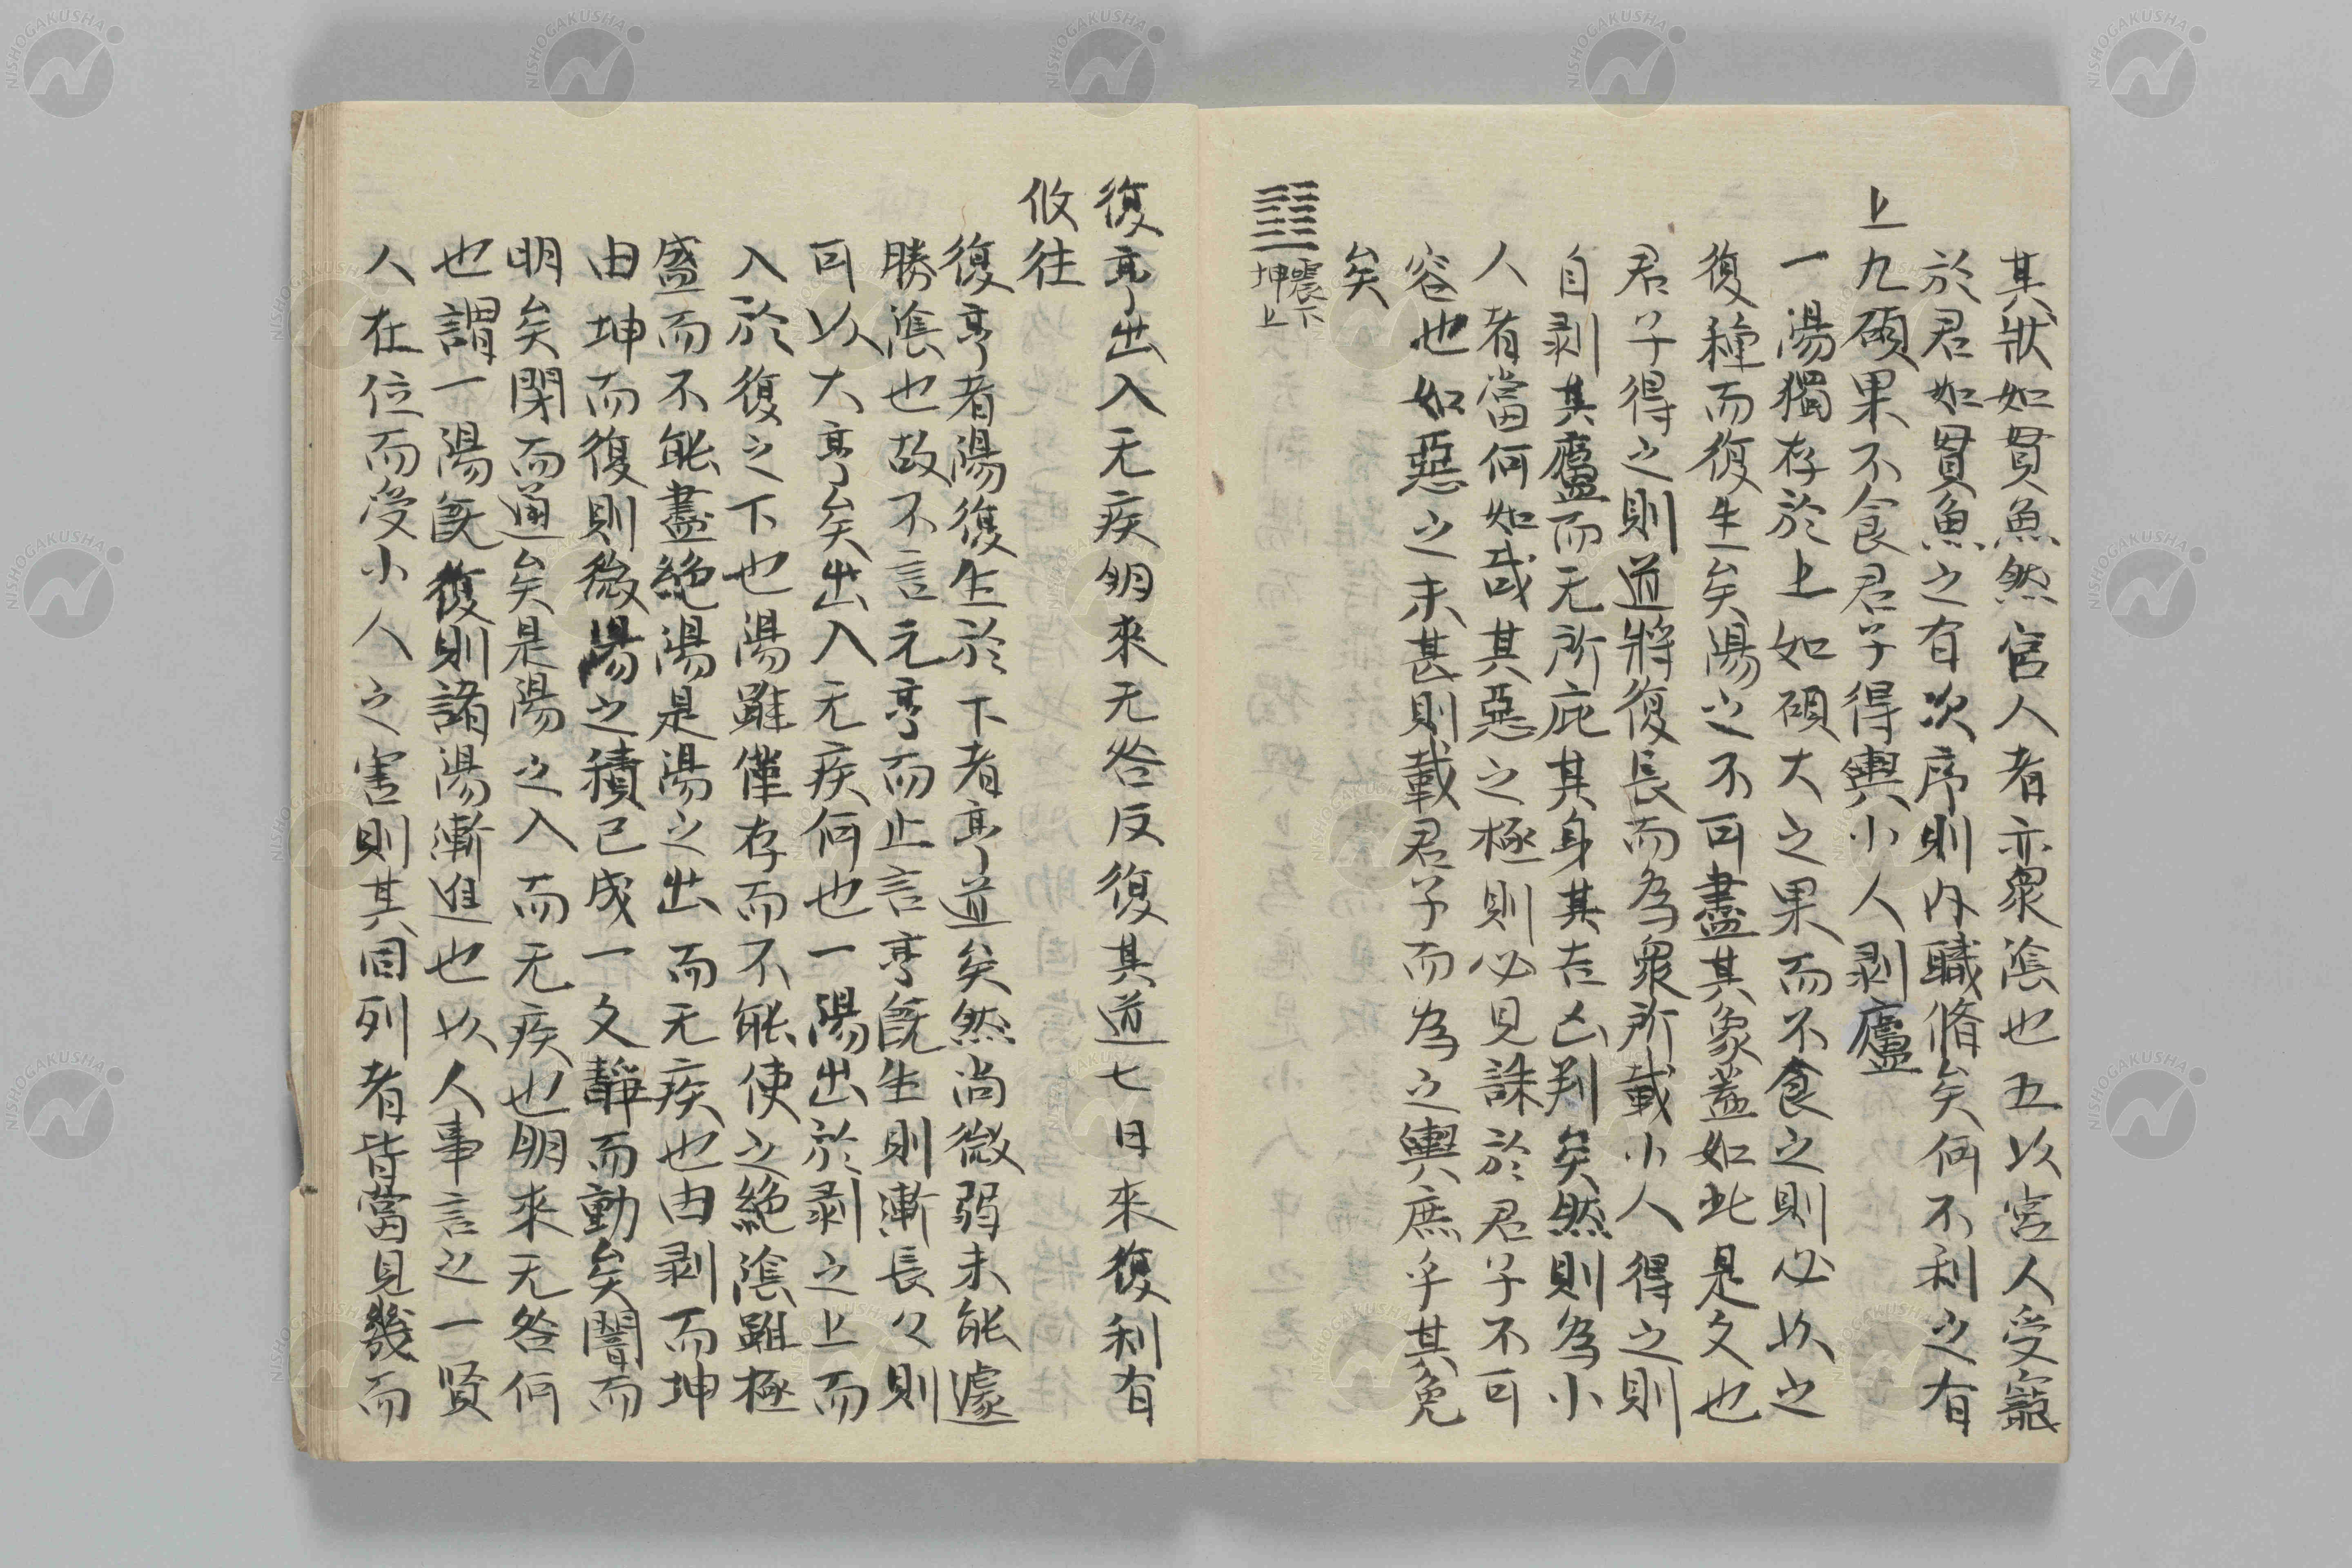 其狀如貫魚然宮人者亦衆陰也五以宮人受寵
於君如貫魚之有次序則内職脩矣何不利之有
上九碩果不食君子得輿小人剥廬
一陽獨存於上如碩大之果而不食之則必以之
復種而復生矣陽之不可盡其象蓋如此是爻也
君子得之則道將復長而為衆所載小人得之則
自剥其廬而无所庇其身其吉凶判矣然則為小
人者當何如哉其惡之極則必見誅於君子不可
容也如惡之未甚則載君子而為之輿庶乎其免
矣
䷗震下坤上
復亨出入无疾朋來无咎反復其道七日來復利有
攸往
復亨者陽復生於下者亨道矣然尚微弱未能遽
勝陰也故不言元亨而止言亨既生則漸長々則
可以大亨矣出入无疾何也一陽出於剥之上而
入於復之下也陽雖僅存而不能使之絶陰雖極
盛而不能盡絶陽是陽之出而无疾也由剥而坤
由坤而復則微陽之積已成一爻靜而動矣闇而
明矣閉而通矣是陽之入而无疾也朋來无咎何
也謂一陽既復則諸陽漸進也以人事言之一賢
人在位而受小人之害則其同列者皆當見幾而